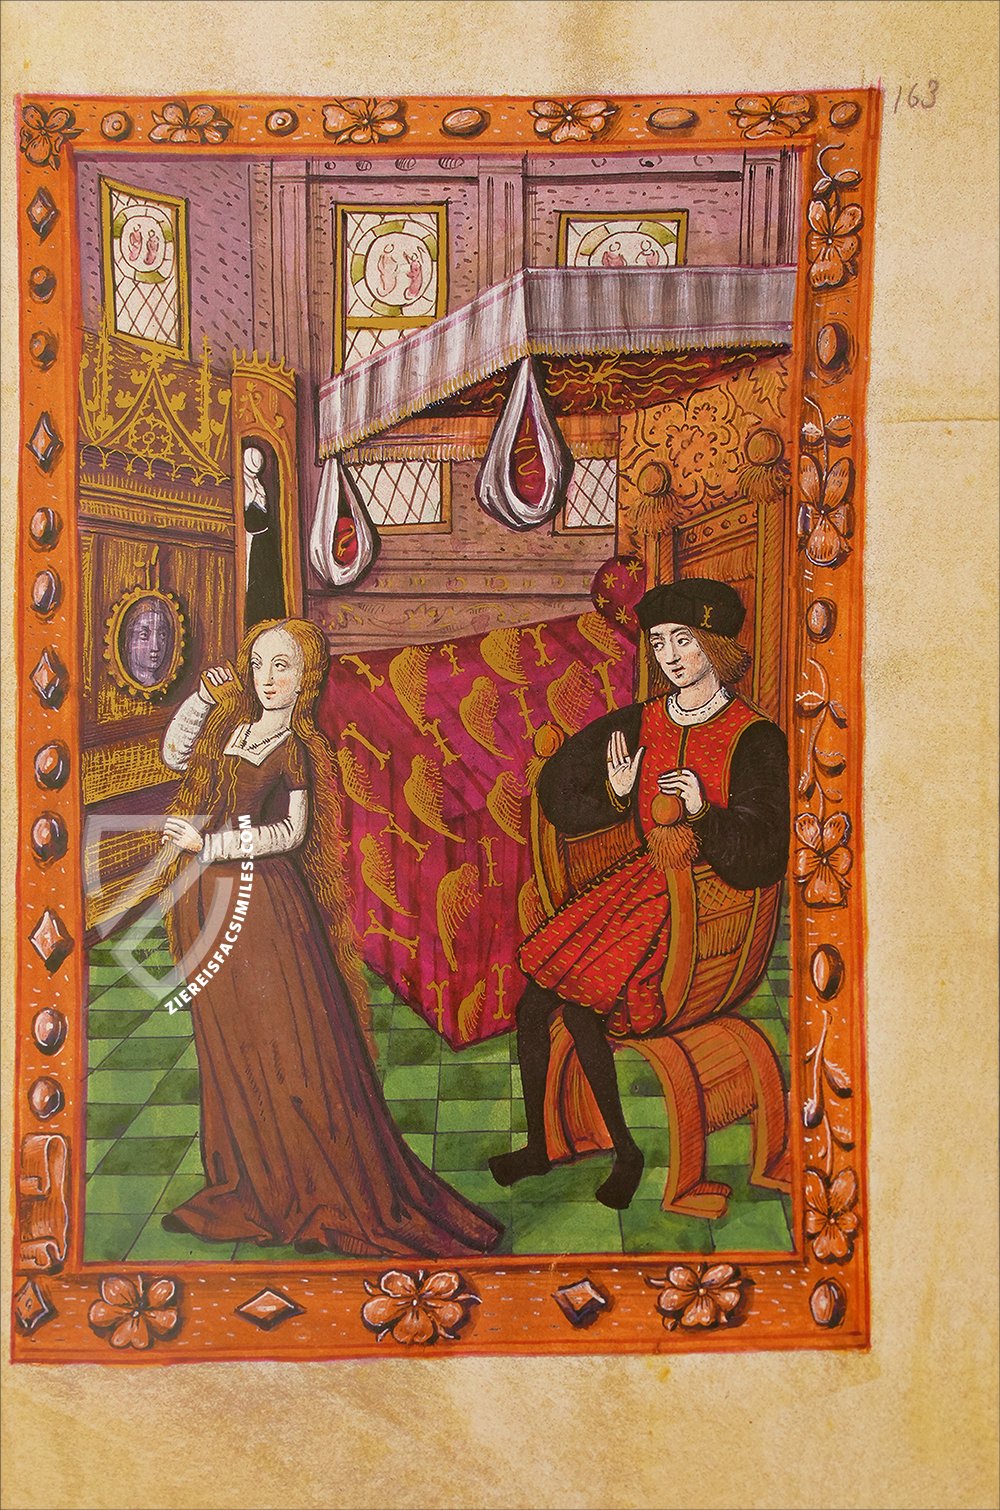 163
ZIEREISFACSIMILES.COM